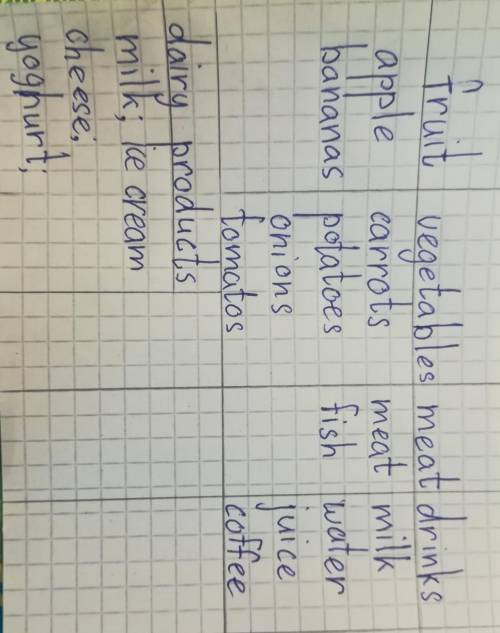 fruit vegetables meat drinks
apple carrots meat milk
bananas potatoes fish water
onions juice
tomatos coffee
dairy products
milk; ice cream
cheese;
yoghurt;